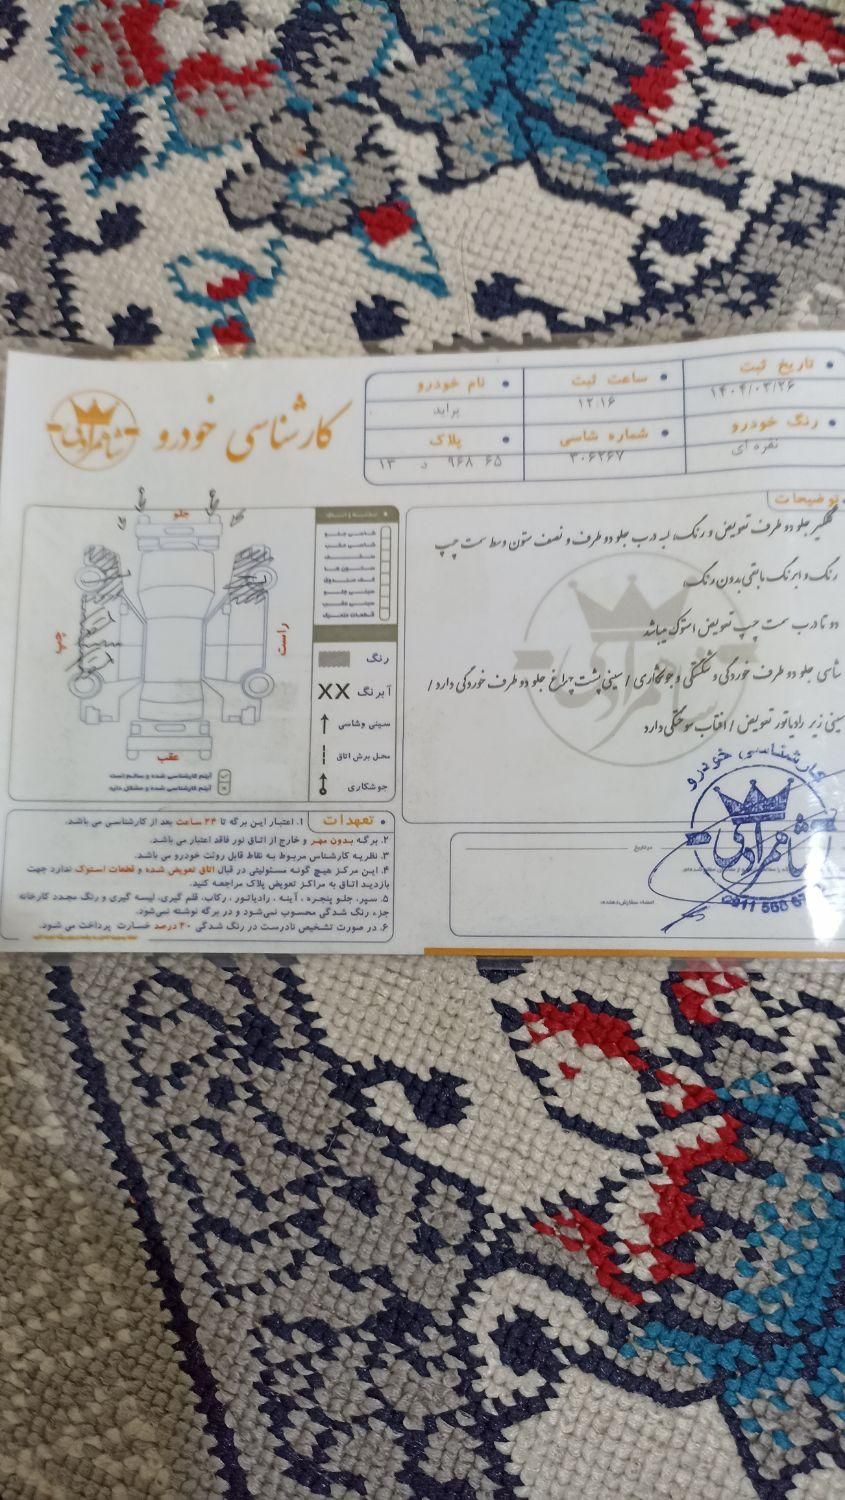 کارشناسی خودرو
شاهمرادی
تاریخ ثبت
۱۴۰۴/۰۳/۲۶
ساعت ثبت
۱۲:۱۶
نام خودرو
پراید
رنگ خودرو
نقره ای
شماره شاسی
۳۰۶۲۶۷
پلاک
۱۳ د ۹۶۸ ۶۵
توضیحات
گلگیر جلو دو طرف تعویض و رنگ، لبه درب جلو دو طرف و نصف ستون وسط سمت چپ
رنگ و ابرنگ مابقی بدون رنگ،
دو تا درب سمت چپ تعویض استوک میباشد
شاسی جلو دو طرف خوردگی و شکستگی و جوشکاری / سینی پشت چراغ جلو دو طرف خوردگی دارد /
سینی زیر رادیاتور تعویض / افتاب سوختگی دارد
جلو
چپ
راست
عقب
شاسی جلو
شاسی عقب
سقف
ستون ها
کف صندوق
سینی جلو
سینی عقب
رنگ
XX آبرنگ
سینی وشاسی
محل برش اتاق
جوشکاری
آیتم کارشناسی شده و سالم است
آیتم کارشناسی شده و مشکل دارد
تعهدات
۱. اعتبار این برگه تا ۲۴ ساعت بعد از کارشناسی می باشد.
۲. برگه بدون مهر و خارج از اتاق نور فاقد اعتبار می باشد.
۳. نظریه کارشناس مربوط به نقاط قابل روئت خودرو می باشد.
۴. این مرکز هیچ گونه مسئولیتی در قبال اتاق تعویض شده و قطعات استوک ندارد جهت
بازدید اتاق به مراکز تعویض پلاک مراجعه کنید.
۵. سپر، جلو پنجره ، آینه ، رادیاتور ، رکاب، قلم گیری، لیسه گیری و رنگ مجدد کارخانه
جزء رنگ شدگی محسوب نمی‌شود و در برگه نوشته نمی‌شود.
۶. در صورت تشخیص نادرست در رنگ شدگی ۲۰ درصد خسارت پرداخت می شود.
درتاریخ
امضاء سفارش‌دهنده:
کارشناسی خودرو
شاهمرادی